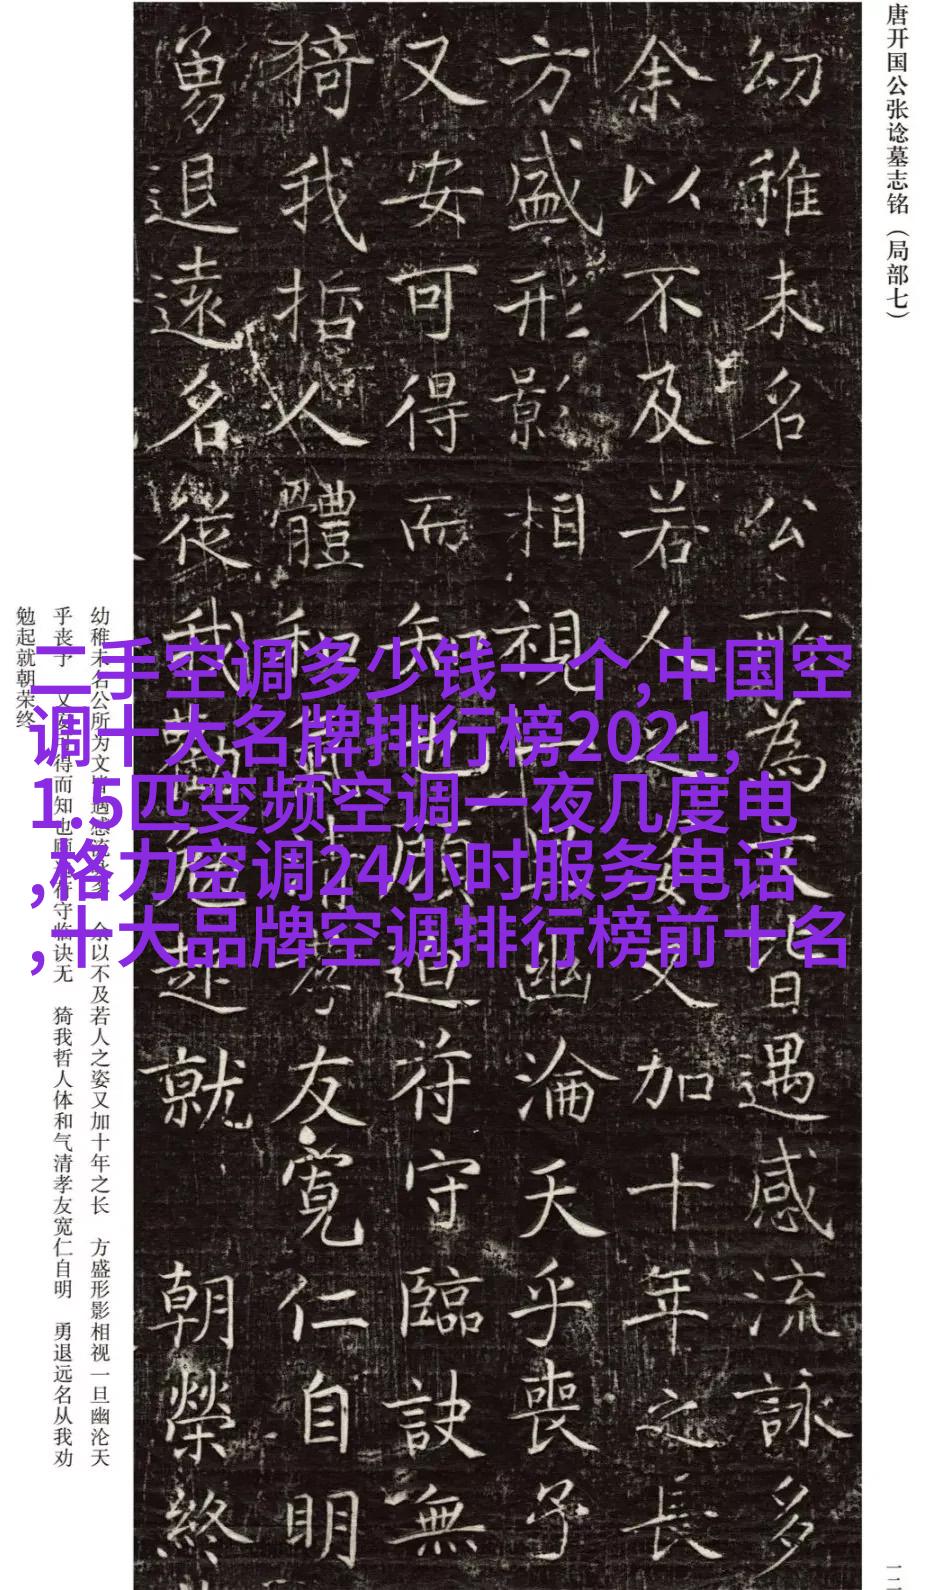 唐开国公张谂墓志铭（局部七）
幼稚未名公所為文皆遇感流詠多
余以不及若人之姿又加十年之長
方盛形影相視一旦幽淪天乎喪予
又安可得而知也顧迫符守臨訣無
猗我哲人體和氣清孝友寬仁自明
勇退遠名從我勸勉起就 朝榮終
幼稚未名公所为文皆遇感流咏多 余以不及若人之姿又加十年之长 方盛形影相视一旦幽沦天
乎丧予 又安可得而知也顾迫符守临诀无 猗我哲人体和气清孝友宽仁自明 勇退远名从我劝
勉起就朝荣终
二手空调多少钱一个,中国空
调十大名牌排行榜2021,
1.5匹变频空调一夜几度电
,格力空调24小时服务电话
,十大品牌空调排行榜前十名